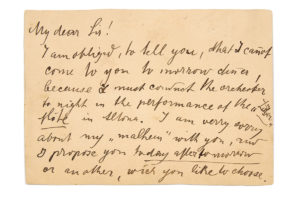 My dear Sir!
I am obliged, to tell you, that I cannot
come to you to morrow diner,
because I must conduct the orchester
to night in the performance of the „Zauber-
flöte in Altona. I am verry sorry
about my „malheur" with you, and
I propose you today after to morrow
or another, wich you like to choose.